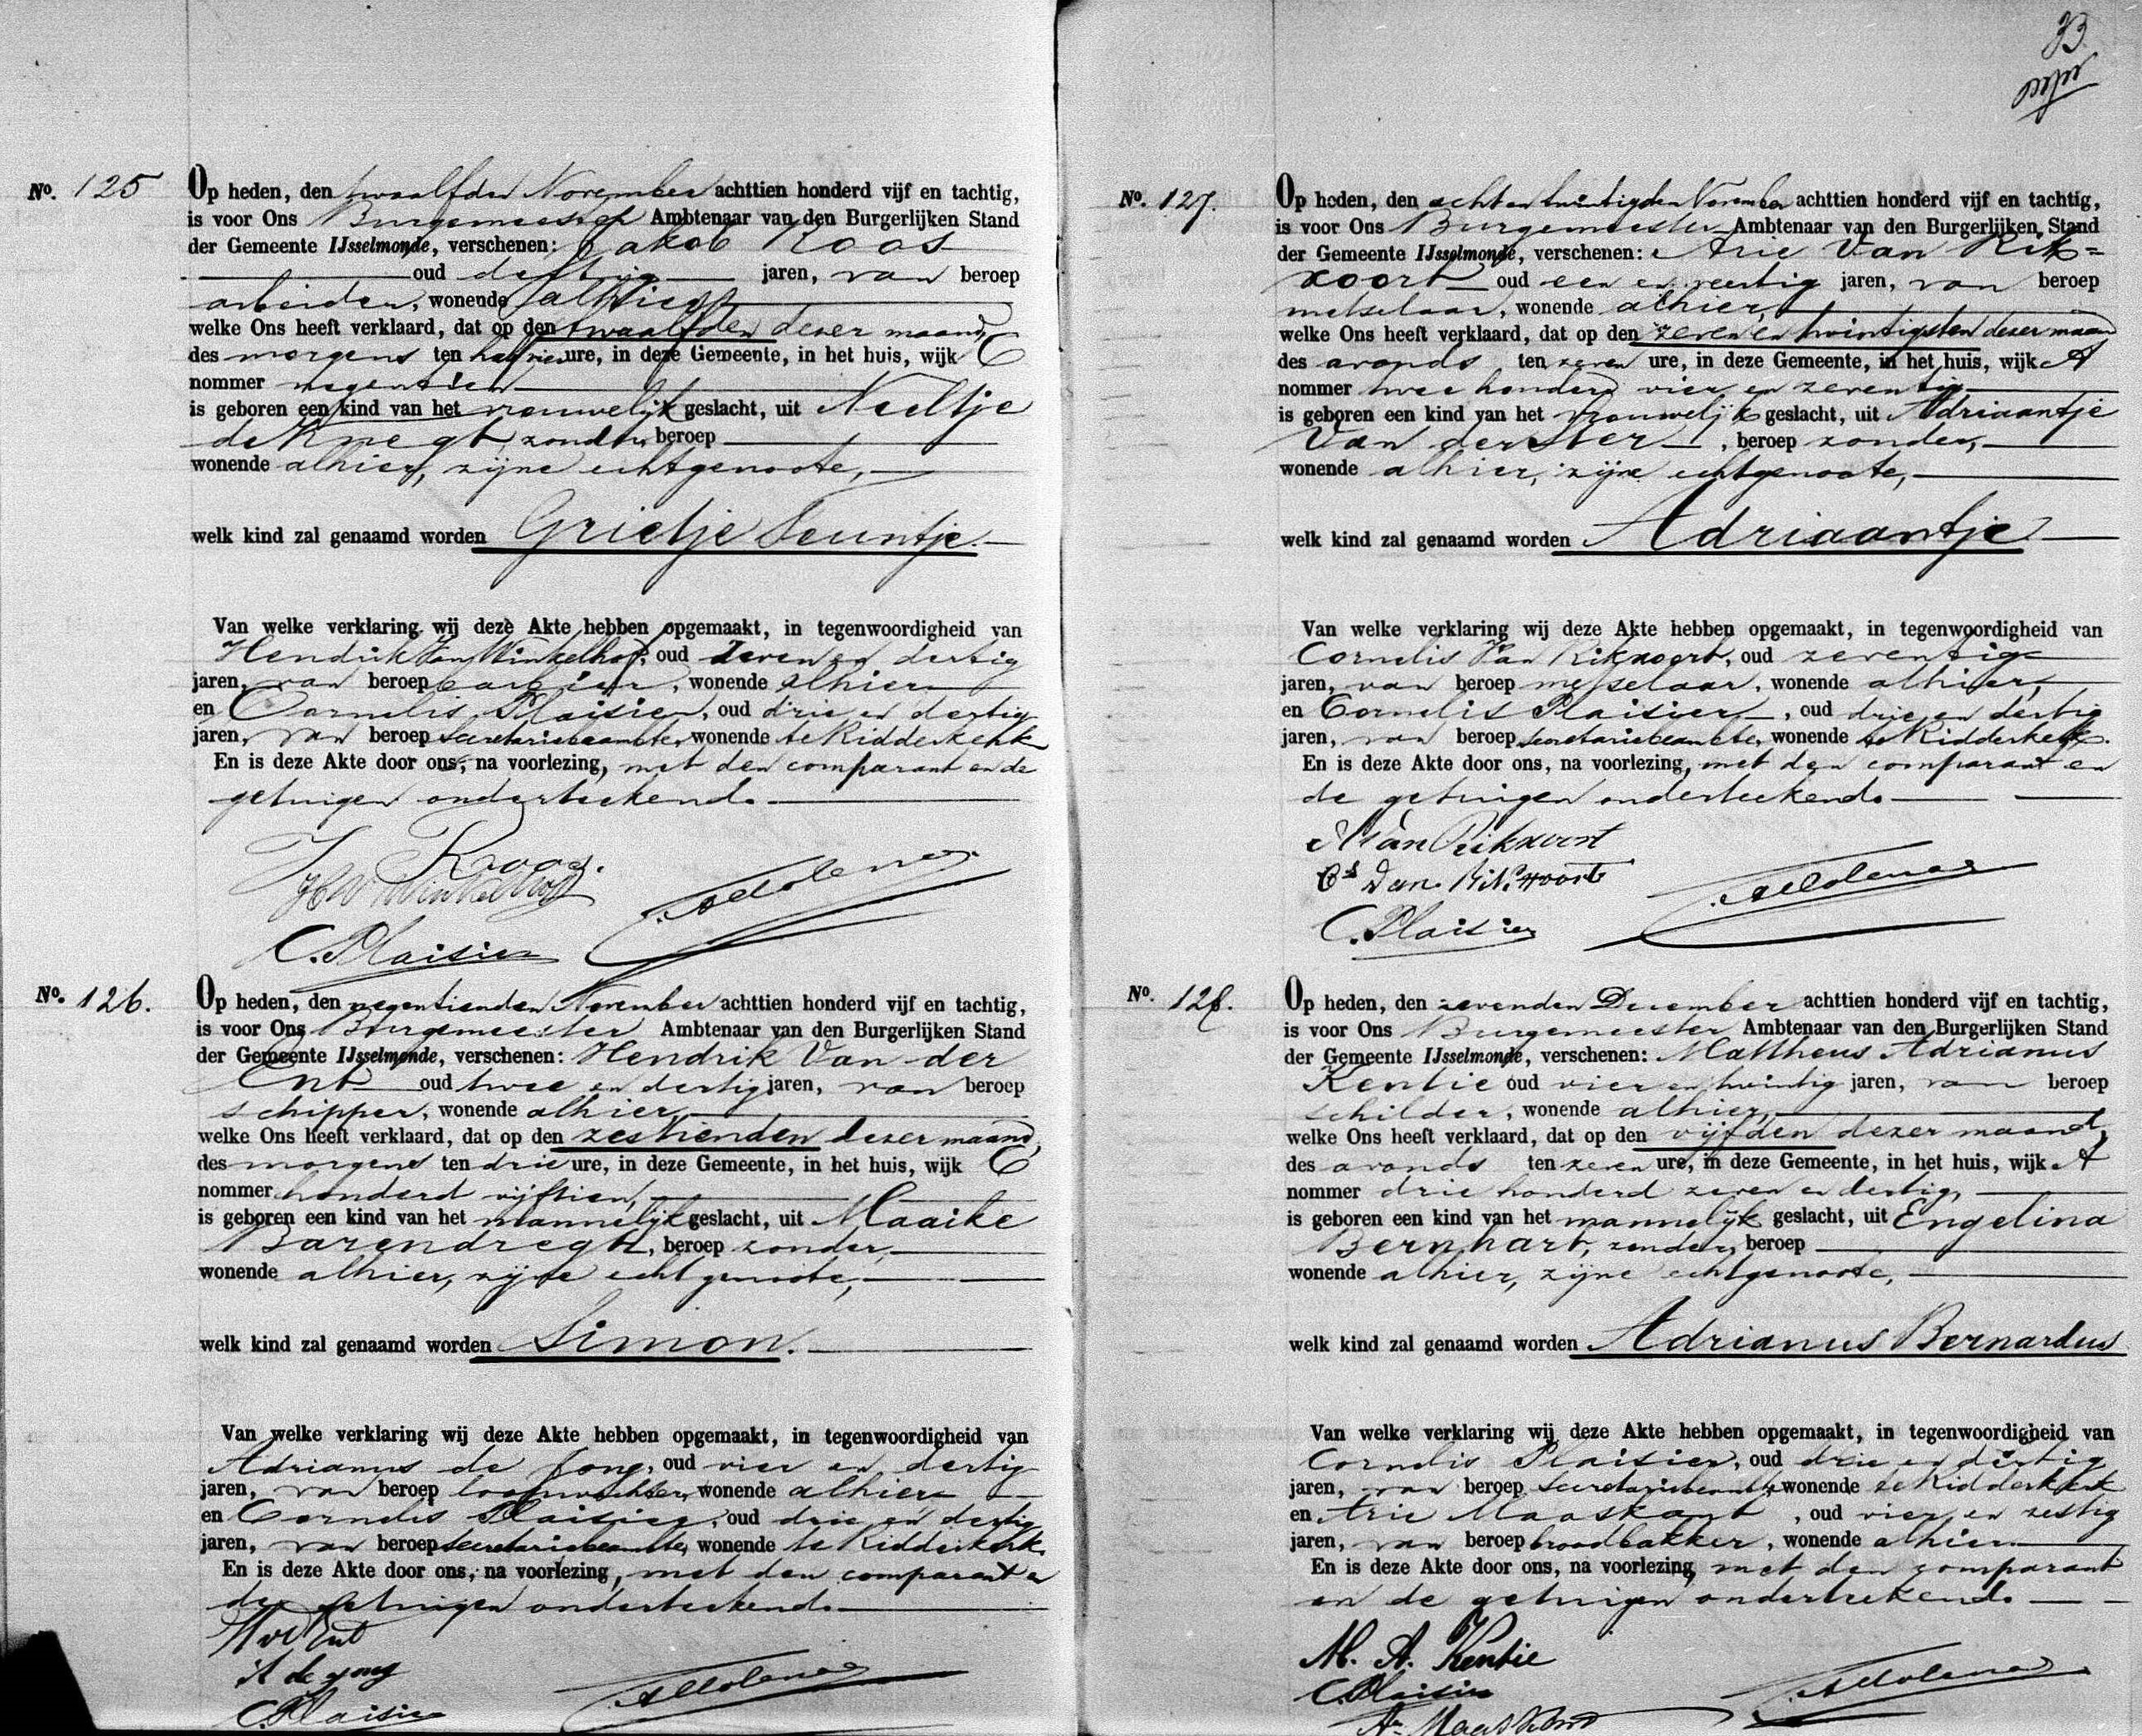 No. 125
Op heden, den twaalfden November achttien honderd vijf en tachtig,
is voor Ons Burgemeester Ambtenaar van den Burgerlijken Stand
der Gemeente IJsselmonde, verschenen: Jakob Kroos
oud dertig jaren, van beroep
arbeider, wonende alhier,
welke Ons heeft verklaard, dat op den twaalfden dezer maand,
des morgens ten half vier ure, in deze Gemeente, in het huis, wijk C
nommer negentien
is geboren een kind van het vrouwelijk geslacht, uit Neeltje
de Knegt, zonder beroep
wonende alhier, zijne echtgenoote,
welk kind zal genaamd worden Grietje Teuntje.
Van welke verklaring wij deze Akte hebben opgemaakt, in tegenwoordigheid van
Hendrik Van Winkelhof, oud zeven en dertig
jaren, van beroep barbier, wonende alhier
en Cornelis Plaisier, oud drie en dertig
jaren, van beroep secretariebeambte, wonende te Ridderkerk
En is deze Akte door ons, na voorlezing, met den comparant en de
getuigen onderteekend.
J Kroos.
C. Plaisier
No. 126.
Op heden, den negentienden November achttien honderd vijf en tachtig,
is voor Ons Burgemeester Ambtenaar van den Burgerlijken Stand
der Gemeente IJsselmonde, verschenen: Hendrik Van der
Ent oud twee en dertig jaren, van beroep
schipper, wonende alhier,
welke Ons heeft verklaard, dat op den zestienden dezer maand,
des morgens ten drie ure, in deze Gemeente, in het huis, wijk C
nommer honderd vijftien,
is geboren een kind van het mannelijk geslacht, uit Maaike
Barendregt, beroep zonder,
wonende alhier, zijne echtgenoote,
welk kind zal genaamd worden Simon.
Van welke verklaring wij deze Akte hebben opgemaakt, in tegenwoordigheid van
Adrianus de Jong, oud vier en dertig
jaren, van beroep wonende alhier
en Cornelis Plaisier, oud drie en dertig
jaren, van beroep secretariebeambte, wonende te Ridderkerk.
En is deze Akte door ons, na voorlezing, met den comparant en
de getuigen onderteekend.
H vd Ent
A de jong
C. Plaisier
33
No. 127.
Op heden, den acht en twintigsten November achttien honderd vijf en tachtig,
is voor Ons Burgemeester Ambtenaar van den Burgerlijken Stand
der Gemeente IJsselmonde, verschenen: Arie Van Rik=
xoort oud een en veertig jaren, van beroep
metselaar, wonende alhier,
welke Ons heeft verklaard, dat op den zeven en twintigsten dezer maand
des avonds ten zeven ure, in deze Gemeente, in het huis, wijk A
nommer twee honderd vier en zeventig
is geboren een kind van het vrouwelijk geslacht, uit Adriaantje
Van der Ster, beroep zonder,
wonende alhier, zijne echtgenoote,
welk kind zal genaamd worden Adriaantje
Van welke verklaring wij deze Akte hebben opgemaakt, in tegenwoordigheid van
Cornelis Van Rikxoort, oud zeventig
jaren, van beroep metselaar, wonende alhier,
en Cornelis Plaisier, oud drie en dertig
jaren, van beroep secretariebeambte, wonende te Ridderkerk.
En is deze Akte door ons, na voorlezing, met den comparant en
de getuigen onderteekend.
A Van Rikxoort
Cs Van Rikxoort
C. Plaisier
No. 128.
Op heden, den zevenden December achttien honderd vijf en tachtig,
is voor Ons Burgemeester Ambtenaar van den Burgerlijken Stand
der Gemeente IJsselmonde, verschenen: Mattheus Adrianus
Kentie oud vier en twintig jaren, van beroep
schilder, wonende alhier,
welke Ons heeft verklaard, dat op den vijfden dezer maand,
des avonds ten zeven ure, in deze Gemeente, in het huis, wijk A
nommer drie honderd zeven en dertig,
is geboren een kind van het mannelijk geslacht, uit Engelina
Bernhart, zonder beroep
wonende alhier, zijne echtgenoote,
welk kind zal genaamd worden Adrianus Bernardus
Van welke verklaring wij deze Akte hebben opgemaakt, in tegenwoordigheid van
Cornelis Plaisier, oud drie en dertig
jaren, van beroep secretariebeambte wonende te Ridderkerk
en Arie Maaskant, oud vier en zestig
jaren, van beroep broodbakker, wonende alhier
En is deze Akte door ons, na voorlezing, met den comparant
en de getuigen onderteekend.
M. A. Kentie
C. Plaisier
Ar Maaskant